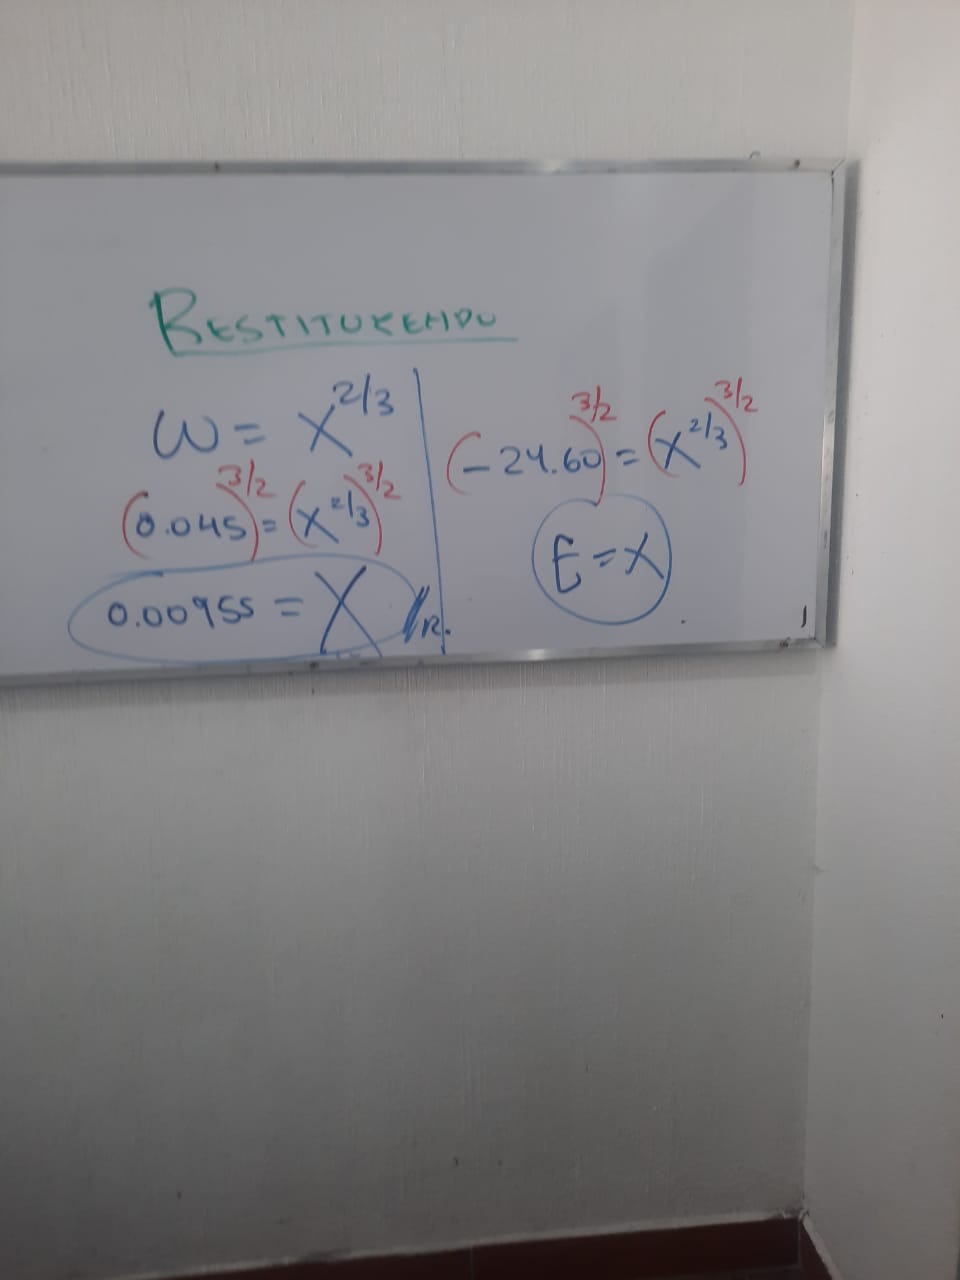 RESTITUYENDO
ω = x^2/3
(0.045)^3/2 = (x^2/3)^3/2
0.00955 = X //R.
(-24.60)^3/2 = (x^2/3)^3/2
E = X